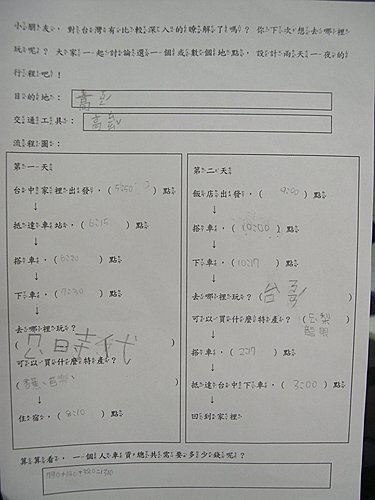 小朋友，對台灣有比較深入的瞭解了嗎？你下次想去哪裡
玩呢？大家一起討論選一個或數個地點，設計兩天一夜的
行程吧！
目的地：
交通工具：高鐵
流程圖：
第一天
台中家裡出發，（5:50）點
↓
抵達車站，（6:15）點
↓
搭車，（6:20）點
↓
下車，（7:30）點
↓
去哪裡玩？
（ ）
可以買什麼特產？
（ ）
↓
住宿，（8:10）點
第二天
飯店出發，（9:00）點
↓
搭車，（10:00）點
↓
下車，（10:17）點
↓
去哪裡玩？（ ）
可以買什麼特產？（ ）
↓
搭車，（ ）點
↓
抵達台中下車，（3:00）點
↓
回到家裡
算算看，一個人車資總共需要多少錢呢？